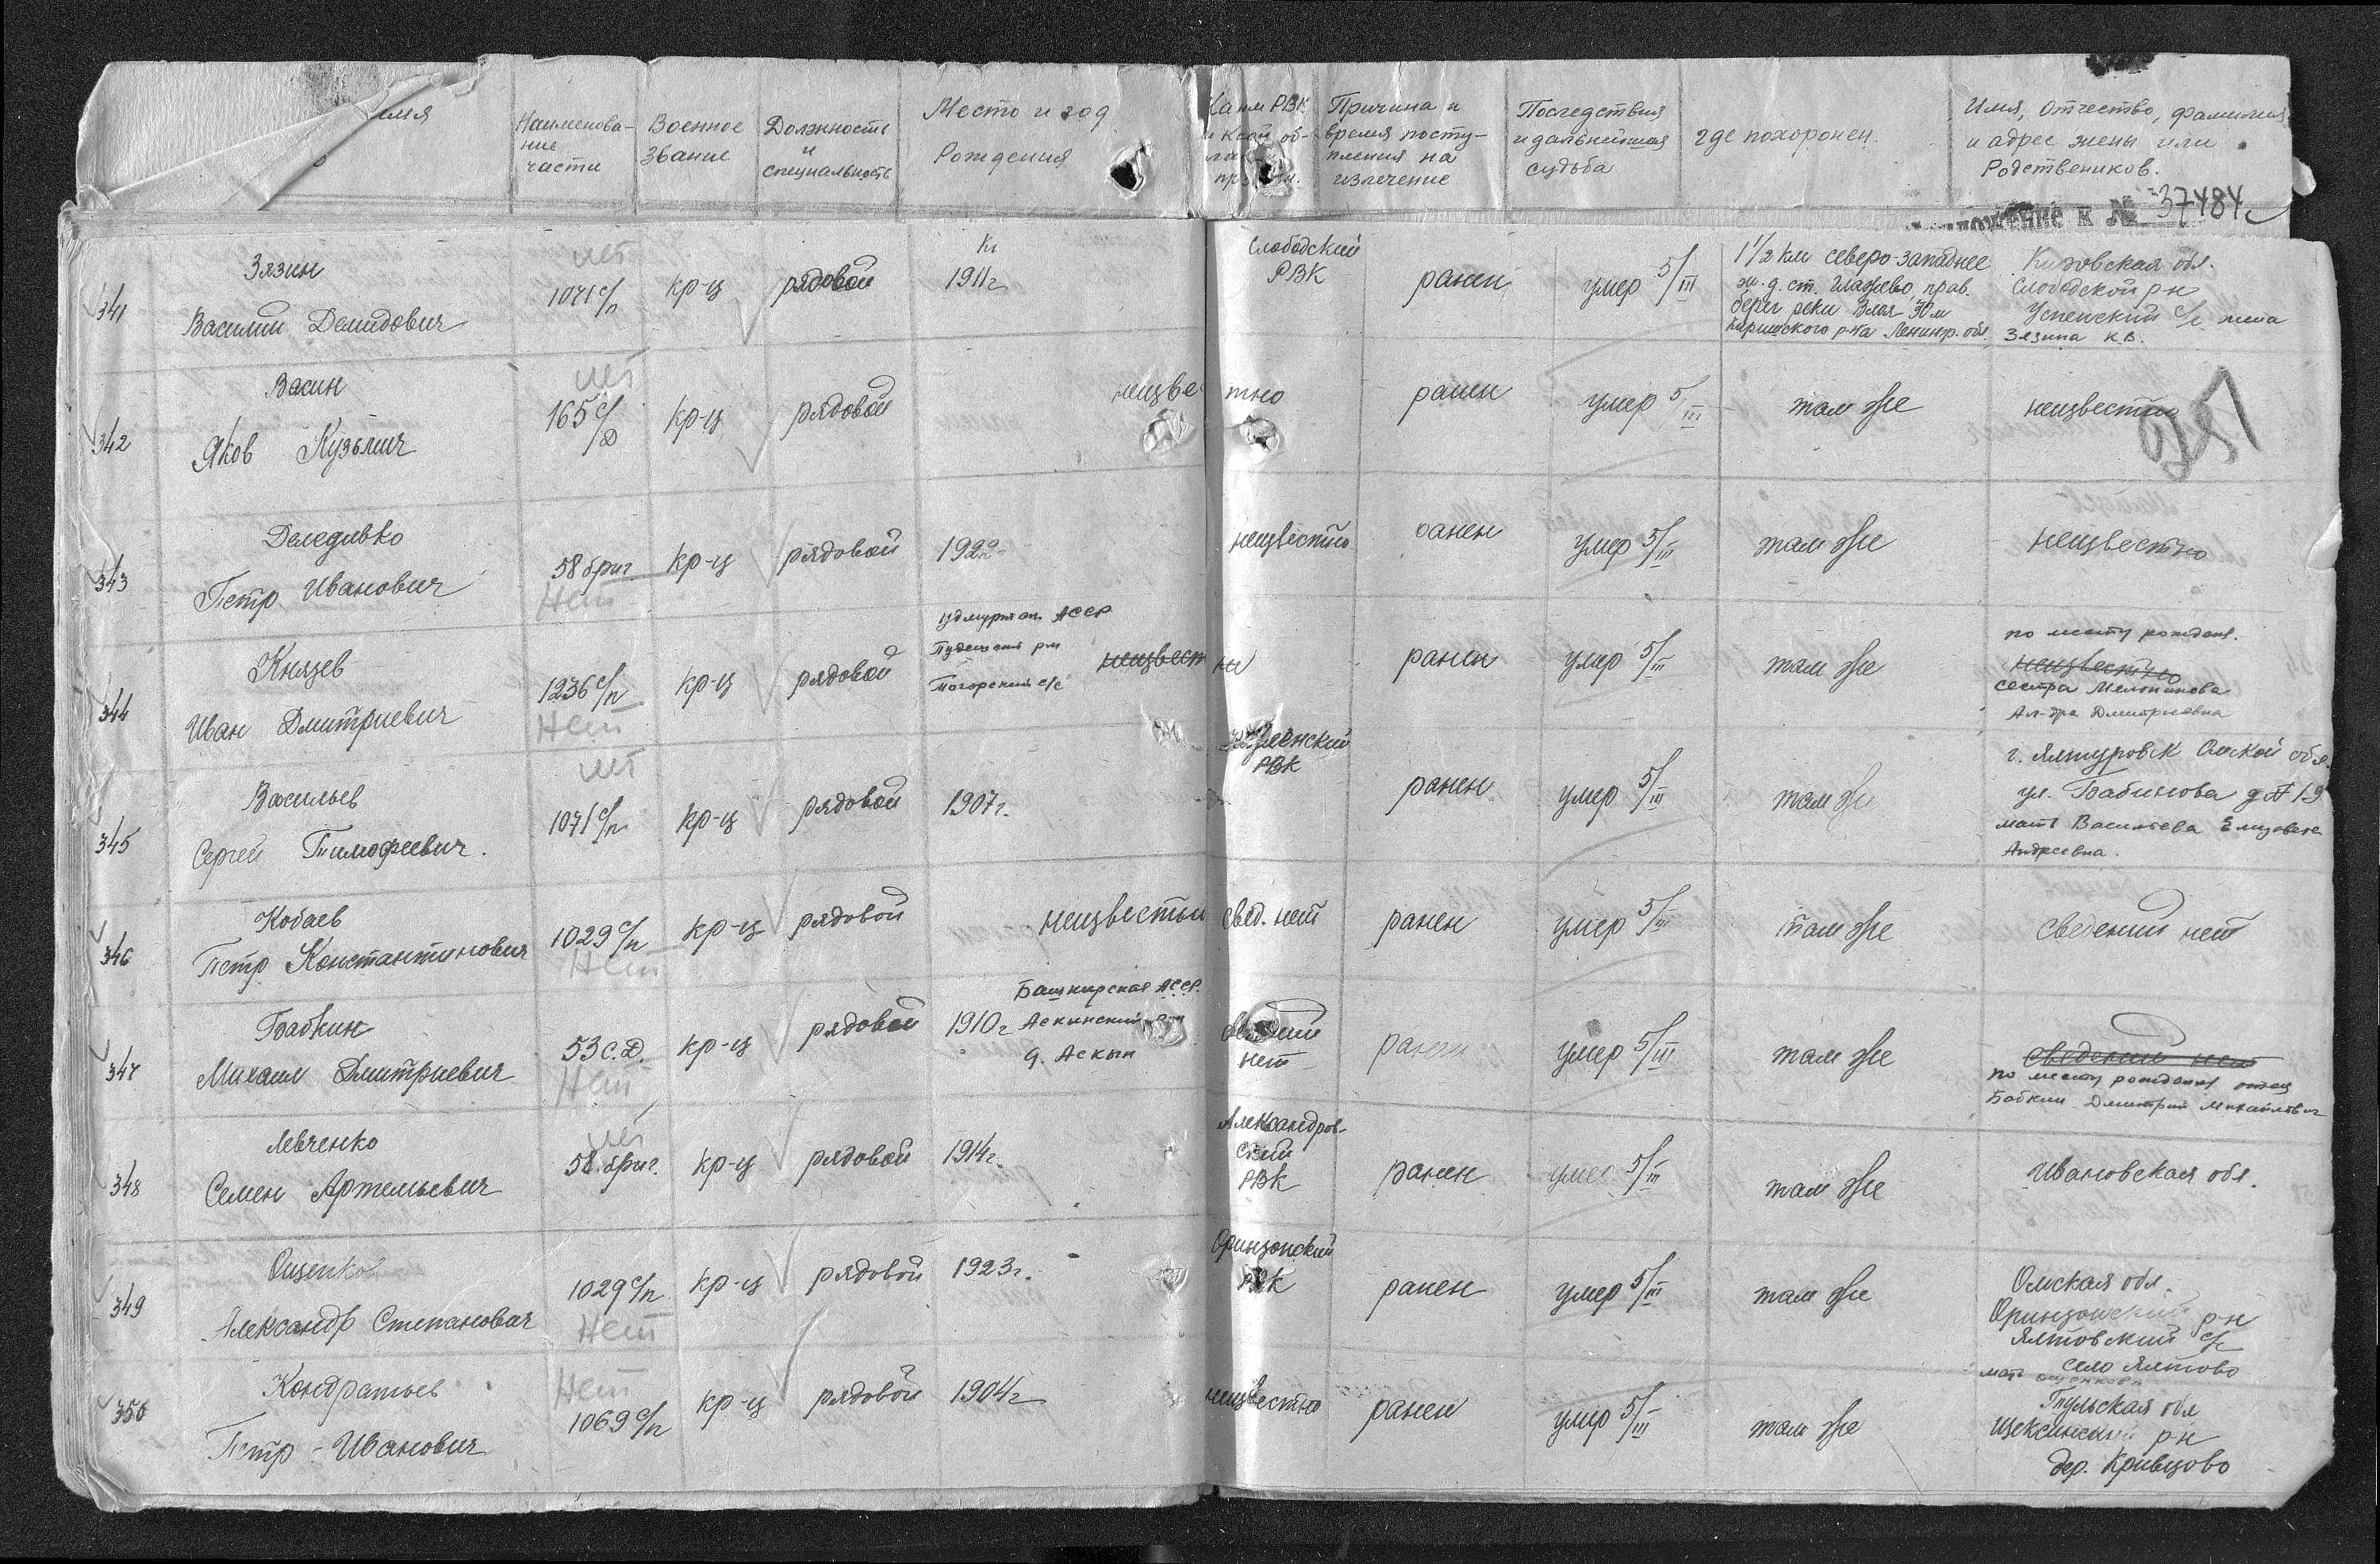 Наименова-
ние
части
Военное
звание
Должность
и
специальность
Место и год
Рождения
Наим РВК
Причина и
время посту-
пления на
излечение
Последствия
и дальнейшая
судьба
где похоронен.
Имя, Отчество, фамилия
и адрес жены или
Родствеников.
к № 37484с
341
Зязин
Василий Демидович
нет
1071 с/п
кр-ц
рядовой
1911г
Слободский
РВК
ранен
умер 5/III
1 1/2 км северо-западнее
ж.д. ст. Глажево, прав.
берег реки Влоя 30 м
Киришского р-на Ленингр. обл.
Кировская обл.
Слободской р-н
Успенский с/с жена
Зязина К.В.
342
Васин
Яков Кузьмич
нет
165 с/д
кр-ц
рядовой
неизвестно
ранен
умер 5/III
там же
неизвестно
343
Петр Иванович
58 бриг.
Нет
кр-ц
рядовой
1922
неизвестно
ранен
умер 5/III
там же
неизвестно
344
Князев
Иван Дмитриевич
1236 с/п
Нет
кр-ц
рядовой
Удмуртск АССР
неизвестно
ранен
умер 5/III
там же
по месту рождения.
неизвестно
сестра Мельникова
Ал-дра Дмитриевна
345
Васильев
Сергей Тимофеевич.
нет
1071 с/п
кр-ц
рядовой
1907г.
РВК
ранен
умер 5/III
там же
г. Ялтуровск Омской обл.
ул. Бабинова д № 19
мать Васильева Елизавета
Андреевна.
346
Кобаев
Петр Константинович
1029 с/п
Нет
кр-ц
рядовой
неизвестно
свед. нет
ранен
умер 5/III
там же
сведений нет
347
Бабкин
Михаил Дмитриевич
53 с.д.
Нет
кр-ц
рядовой
1910г
Башкирская АССР.
Аскинский р-н
д. Аскын
сведений
нет
ранен
умер 5/III
там же
сведений нет
по месту рождения отец
Бабкин Дмитрий Михайлович
348
Левченко
Семен Артемьевич
нет
58 бриг.
кр-ц
рядовой
1914г.
Александров-
ский
РВК
ранен
умер 5/III
там же
Ивановская обл.
349
Ощепков
Александр Степанович
1029 с/п
Нет
кр-ц
рядовой
1923г.
РВК
ранен
умер 5/III
там же
Омская обл.
р-н
Ялтовский с/с
село Ялтово
мать Ощепкова
350
Кондратьев
Петр - Иванович
Нет
1069 с/п
кр-ц
рядовой
1904г
неизвестно
ранен
умер 5/III
там же
Тульская обл
Щекинский р-н
дер. Кривцово